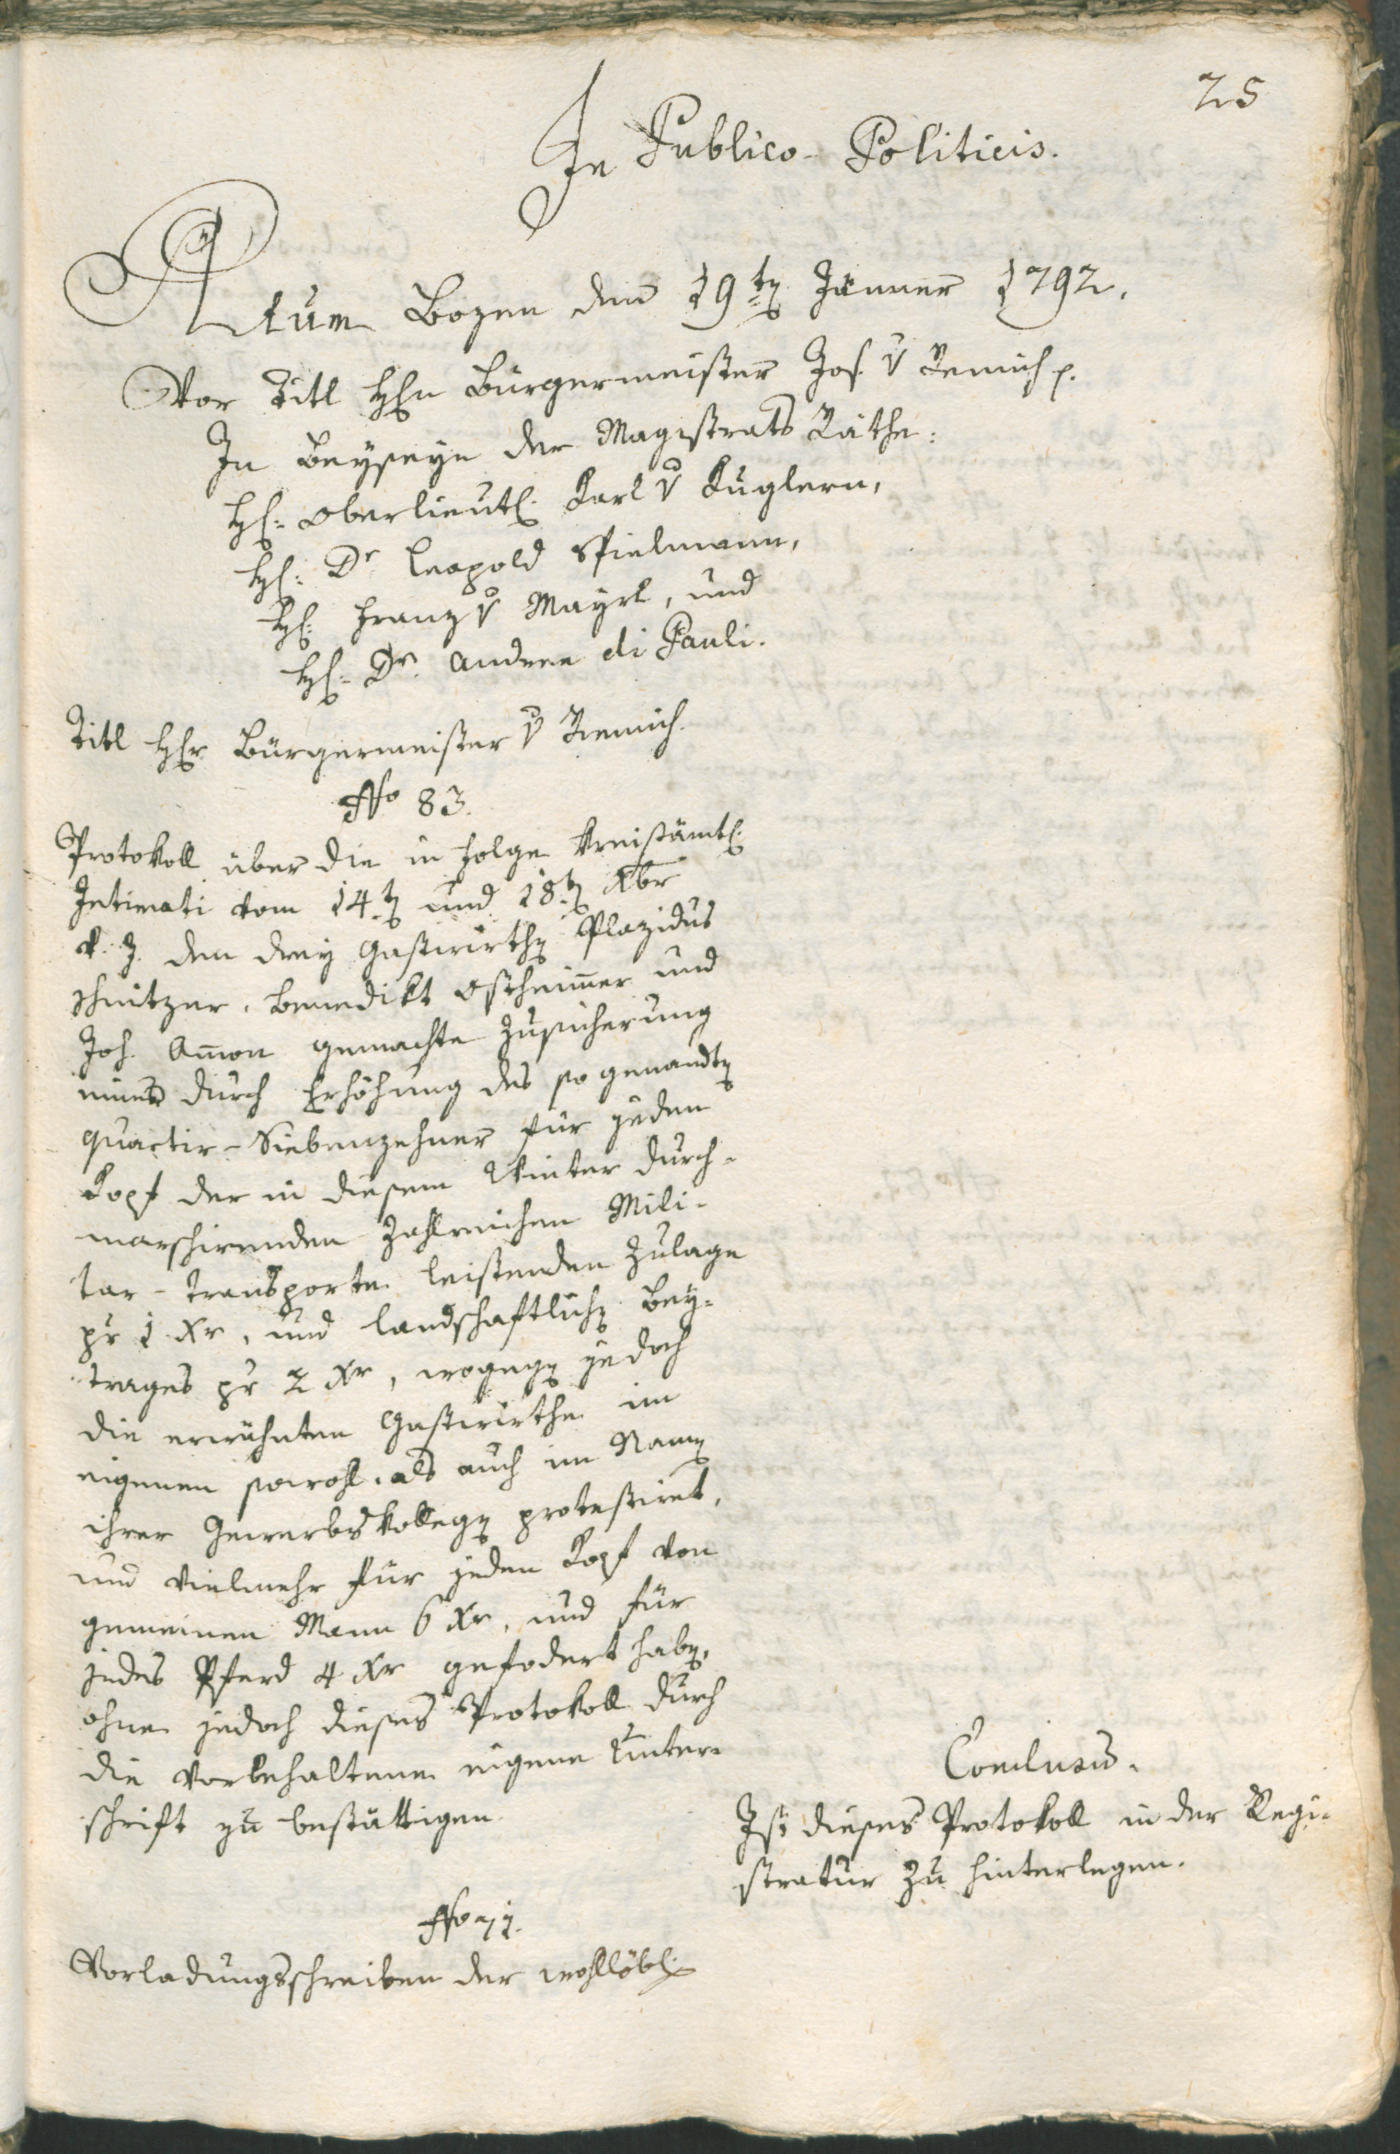 25
In Publico-Politicis.
Actum Bozen den 19ten Jänner 1792.
Vor Titl Hhn Bürgermeister Jos. v Remich p.
In Beyseyn der Magistrats Räthe:
H: Oberlieut: Karl v Kuglern,
H: Dr Leopold Spielmann,
H: Franz v Mayrl, und
H: Dr. Andree di Pauli.
Titl Hhr Bürgermeister v Remich.
No 83.
Protokoll über die in Folge Kreisämtl:
Intimati vom 14ten und 18ten Xbr
v. J. den drey Gastwirthen Plazidus
Schnitzer, Benedikt Ostheimer und
Joh. Amon gemachte Zusicherung
eines durch Erhöhung des so genandten
Quartir-Siebenzehners für jeden
Kopf der in diesem Winter durch-
marschirenden zahlreichen Mili-
tar-Transporte leistenden Zulage
pr 1 Xr, und landschaftlichen Bey-
trages pr 2 Xr, wogegen jedoch
die erwähnten Gastwirthe im
eigenen sowohl, als auch im Namen
ihrer Gewerbskollegen protestiret,
und vielmehr für jeden Kopf von
gemeinen Mann 6 Xr, und für
jedes Pferd 4 Xr gefodert haben,
ohne jedoch dieses Protokoll durch
die vorbehaltene eigene Unter-
schrift zu bestättigen.
Conclusum.
Ist dieses Protokoll in der Regi-
stratur zu hinterlegen.
No 71.
Vorladungsschreiben der wohllöbl: